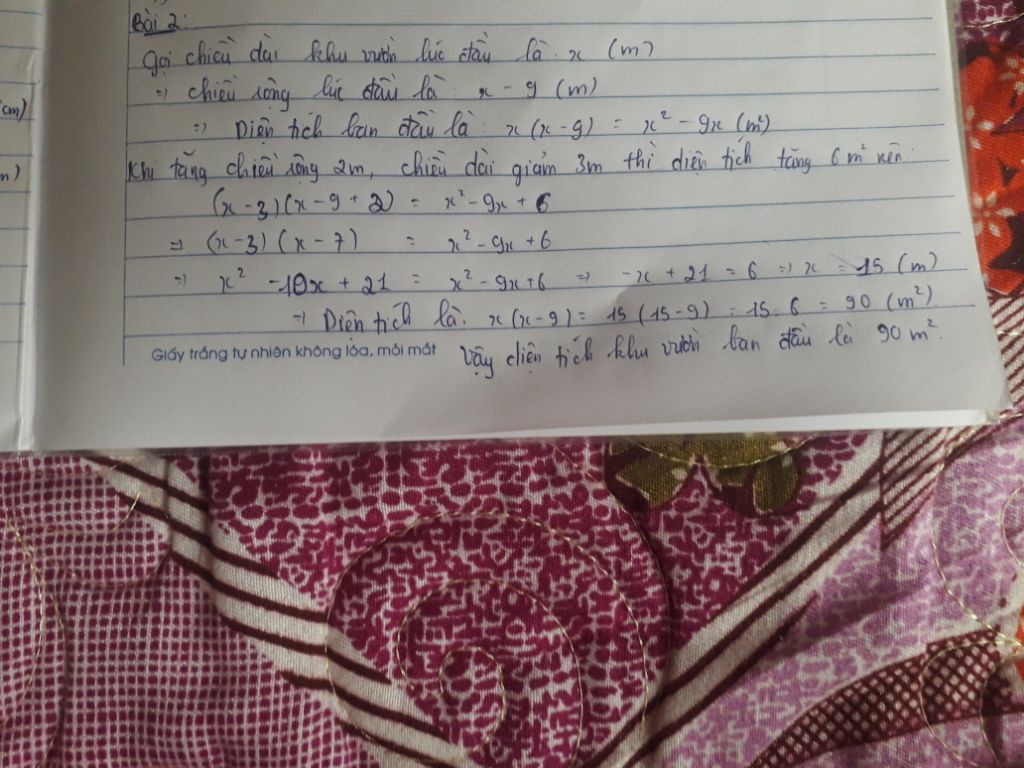 Bài 2:
Gọi chiều dài khu vườn lúc đầu là x (m)
=> chiều rộng lúc đầu là x - 9 (m)
=> Diện tích ban đầu là: x(x-9) = x² - 9x (m²)
Khi tăng chiều rộng 2m, chiều dài giảm 3m thì diện tích tăng 6m² nên:
(x-3)(x-9+2) = x²-9x+6
=> (x-3)(x-7) = x²-9x+6
=> x² -10x+21 = x²-9x+6 => -x+21=6 => x = 15 (m)
=> Diện tích là: x(x-9) = 15(15-9) = 15.6 = 90 (m²)
Giấy trắng tự nhiên không lóa, mỏi mắt
Vậy diện tích khu vườn ban đầu là 90 m².
cm)
m)